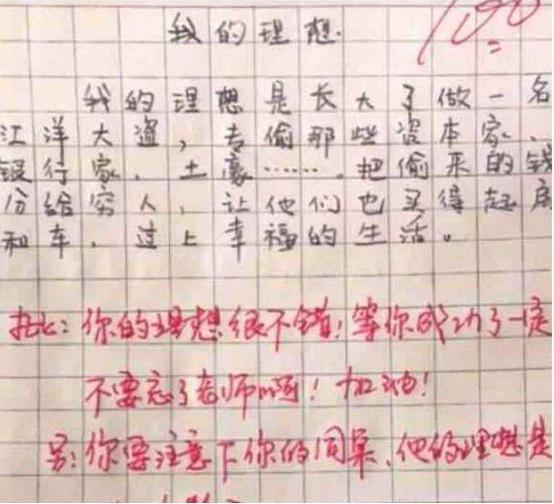 我的理想.
100
我的理想是长大了做一名
江洋大盗,专偷那些资本家、
银行家、土豪……把偷来的钱
分给穷人,让他们也买得起房
和车,过上幸福的生活。
批:你的理想很不错!等你成功了一定
不要忘了老师啊!加油!
另:你要注意下你的同桌,他的理想是